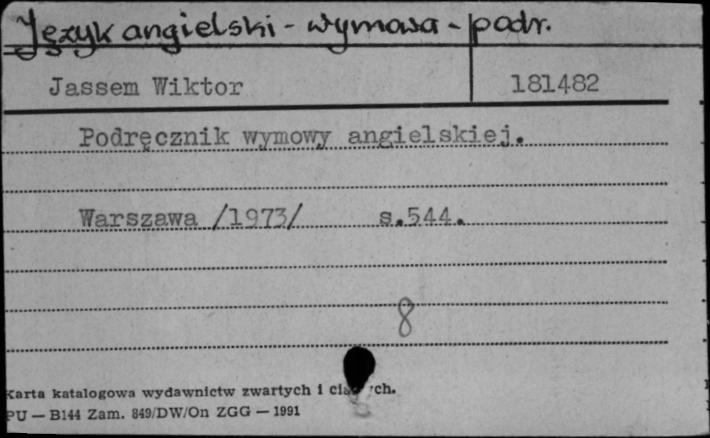 Język angielski - wymowa - podr.
Jassem Wiktor 181482
Podręcznik wymowy angielskiej.
Warszawa /1973/ s.544.
8
Karta katalogowa wydawnictw zwartych i
PU — B144 Zam. 849/DW/On ZGG — 1991